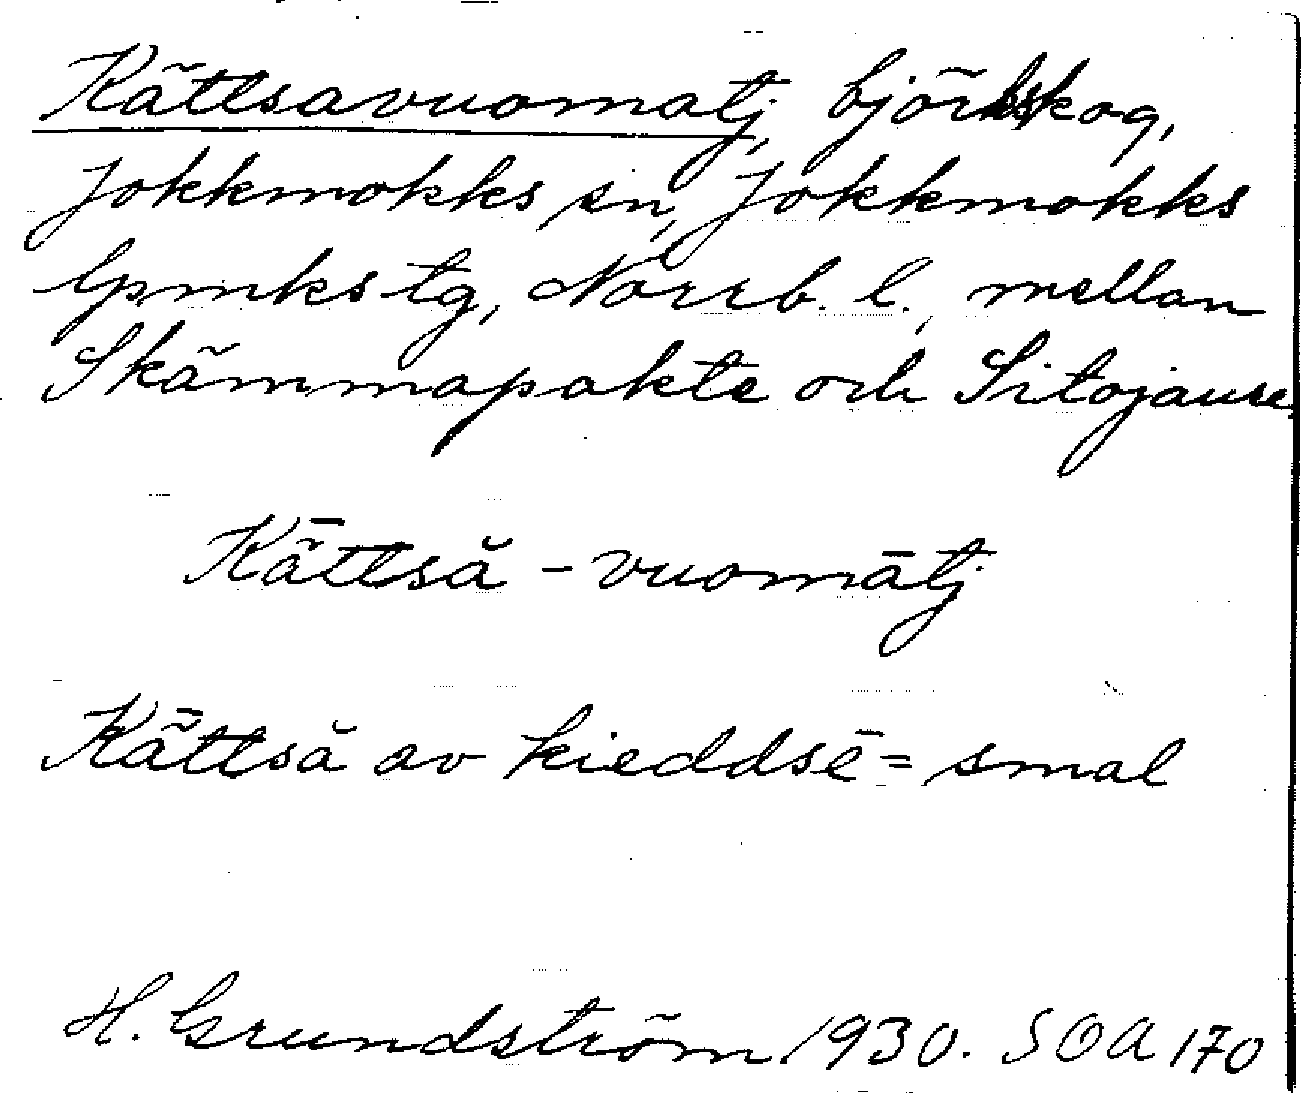 Kättsavuomatj, björkskog,
Jokkmokks sn, Jokkmokks
lpmks tg, Norrb. l., mellan
Skämmapakte och Sitojaure.
Kǟttsă - vuomātj
Kǟttsă av kieddsē = smal
H. Grundström 1930. SOA 170